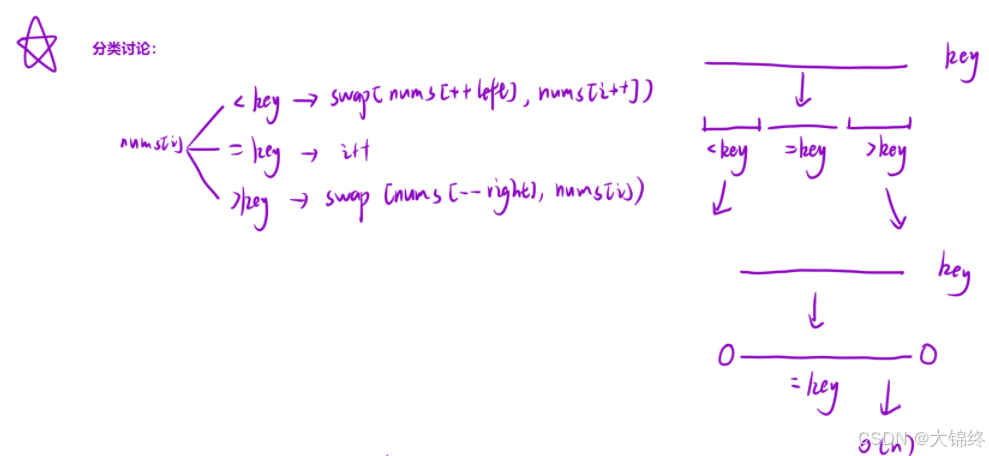 分类讨论：
nums[i]
< key → swap(nums[++left], nums[i++])
= key → i++
> key → swap(nums[--right], nums[i])
key
<key =key >key
key
0 0
=key
O(n)
CSDN @大锦终